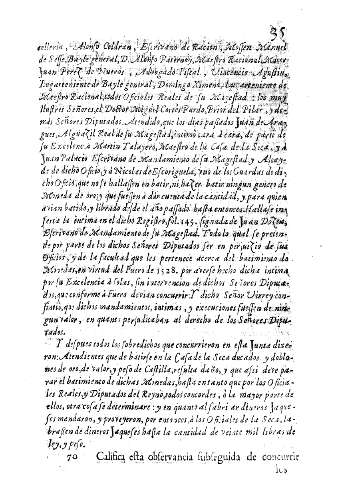 35
celleria, Alonso Celdran, Escrivano de Racion, Mossen Manuel
de Sesse, Bayle general, D. Alonso Patrnoy, Maestro Racional, Micer
Juan Perez de Nueros, Advogado Fiscal, Vincencio Agustin,
Lugarteniente de Bayle general, Domingo Ximeno, Lugarteniente de
Maestro Racional, todos Oficiales Reales de su Magestad: los muy
Ilustres Señores, el Doctor Miguel Carlos Pardo, Prior del Pilar, y de-
más Señores Diputados. Atendido, que los dias passados Juan de Ara-
gues, Alguazil Real de su Magestad, intimò cara à cara, de parte de
su Excelencia à Martin Talayero, Maestro de la Casa de la Seca, y à
Juan Palacio Escrivano de Mandamiento de su Magestad, y Alcay-
de de dicho Oficio, y à Nicolas de Escoriguela, uno de las Guardas de di-
cho Oficio, que no se hallassen en batir, ni hazer batir ningun genero de
Moneda de oro; y que fuessen à dar cuenta de la cantidad, y para quien
avian batido, y librado desde el año passado hasta entonces. Hallase in-
serta la intima en el dicho Registro, fol. 145. signada de Juan Dorau,
Escrivano de Mandamiento de su Magestad. Todo lo qual se preten-
de por parte de los dichos Señores Diputados ser en perjuizio de sus
Oficios, y de la facultad que les pertenece acerca del batimiento de
Monedas, en virtud del Fuero de 1528. por averse hecho dicha intima
por su Excelencia à solas, sin intervencion de dichos Señores Diputa-
dos, que conforme à Fuero devian concurrir. Y dicho Señor Virrey con-
fiatio, q̃ dichos mandamientos, intimas, y execuciones fuessen de nin-
gun valor, en quanto perjudicaban al derecho de los Señores Dipu-
tados.
Y despues todos los sobredichos que concurrieron en esta Junta dixe-
ron: Atendientes que de batirse en la Casa de la Seca ducados y doblo-
nes de oro, de valor, y peso de Castilla, resulta daño, y que assi deve pa-
rar el batimiento de dichas Monedas, hasta en tanto que por los Oficia-
les Reales, y Diputados del Reyno, todos concordes, ò la mayor parte de
ellos, otra cosa se determinare: y en quanto al fabricar dineros Jaque-
ses mandaron, y proveyeron, por entonces, à los Oficiales de la Seca, la-
brassen de dineros Jaqueses hasta la cantidad de veinte mil libras de
ley, y peso.
70 Califica esta observancia subseguida de concurrir
los